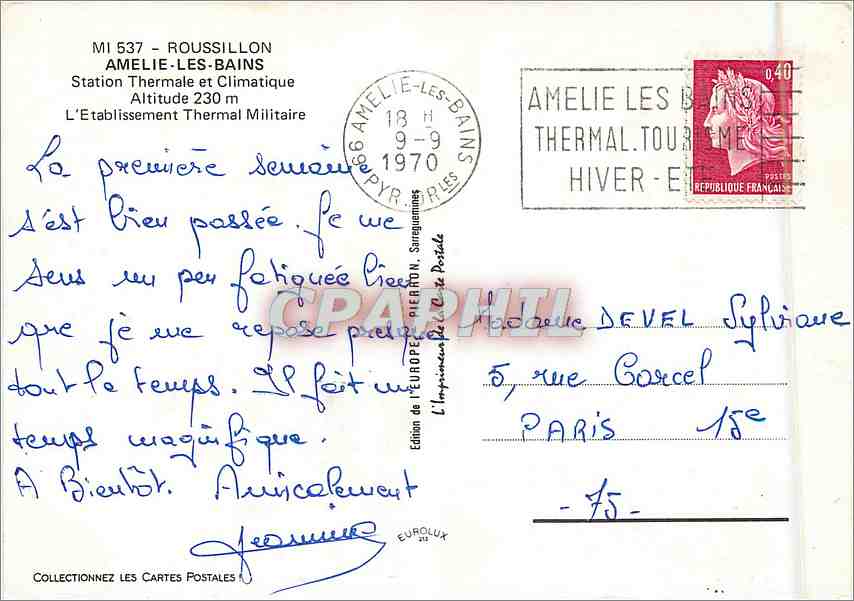 MI 537 - ROUSSILLON
AMELIE-LES-BAINS
Station Thermale et Climatique
Altitude 230 m
L'Etablissement Thermal Militaire
La première semaine
s'est bien passée. Je me
sens un peu fatiguée bien
que je me repose presque
tout le temps. Il fait un
temps magnifique.
A Bientôt. Amicalement
Jeanine
COLLECTIONNEZ LES CARTES POSTALES !
66 AMELIE-LES-BAINS
18 H
9-9
1970
PYR.-ORLES
AMELIE LES BAINS
THERMAL.TOURISME
HIVER - ETE
0,40
POSTES
REPUBLIQUE FRANÇAISE
Edition de l'EUROPE PIERRON, Sarreguemines
L'Imprimeur de la Carte Postale
CPAPHIL
EUROLUX
212
Madame DEVEL Sylviane
5, rue Corcel
PARIS 15e
-75-